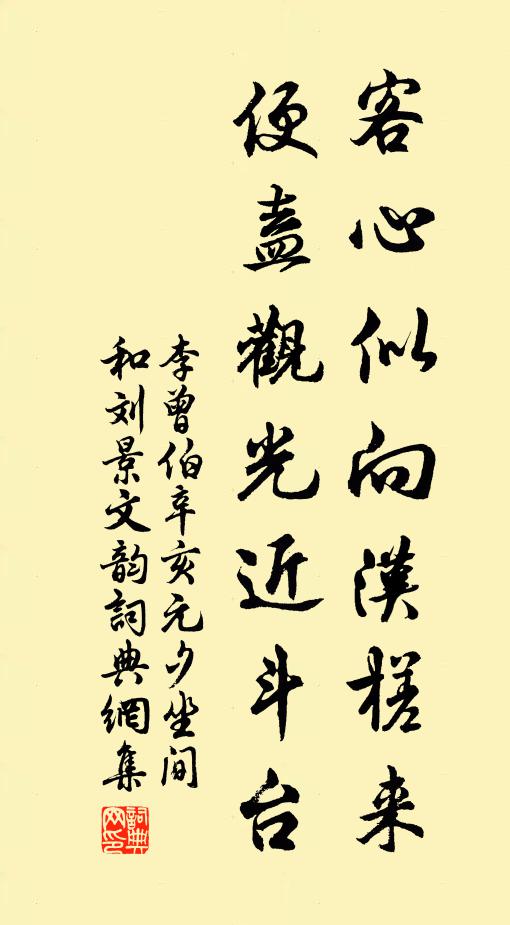 客心似向漢槎来
便盍觀光近斗台
李曾伯辛亥元夕坐间
和刘景文韵詞典網集
詞典網印